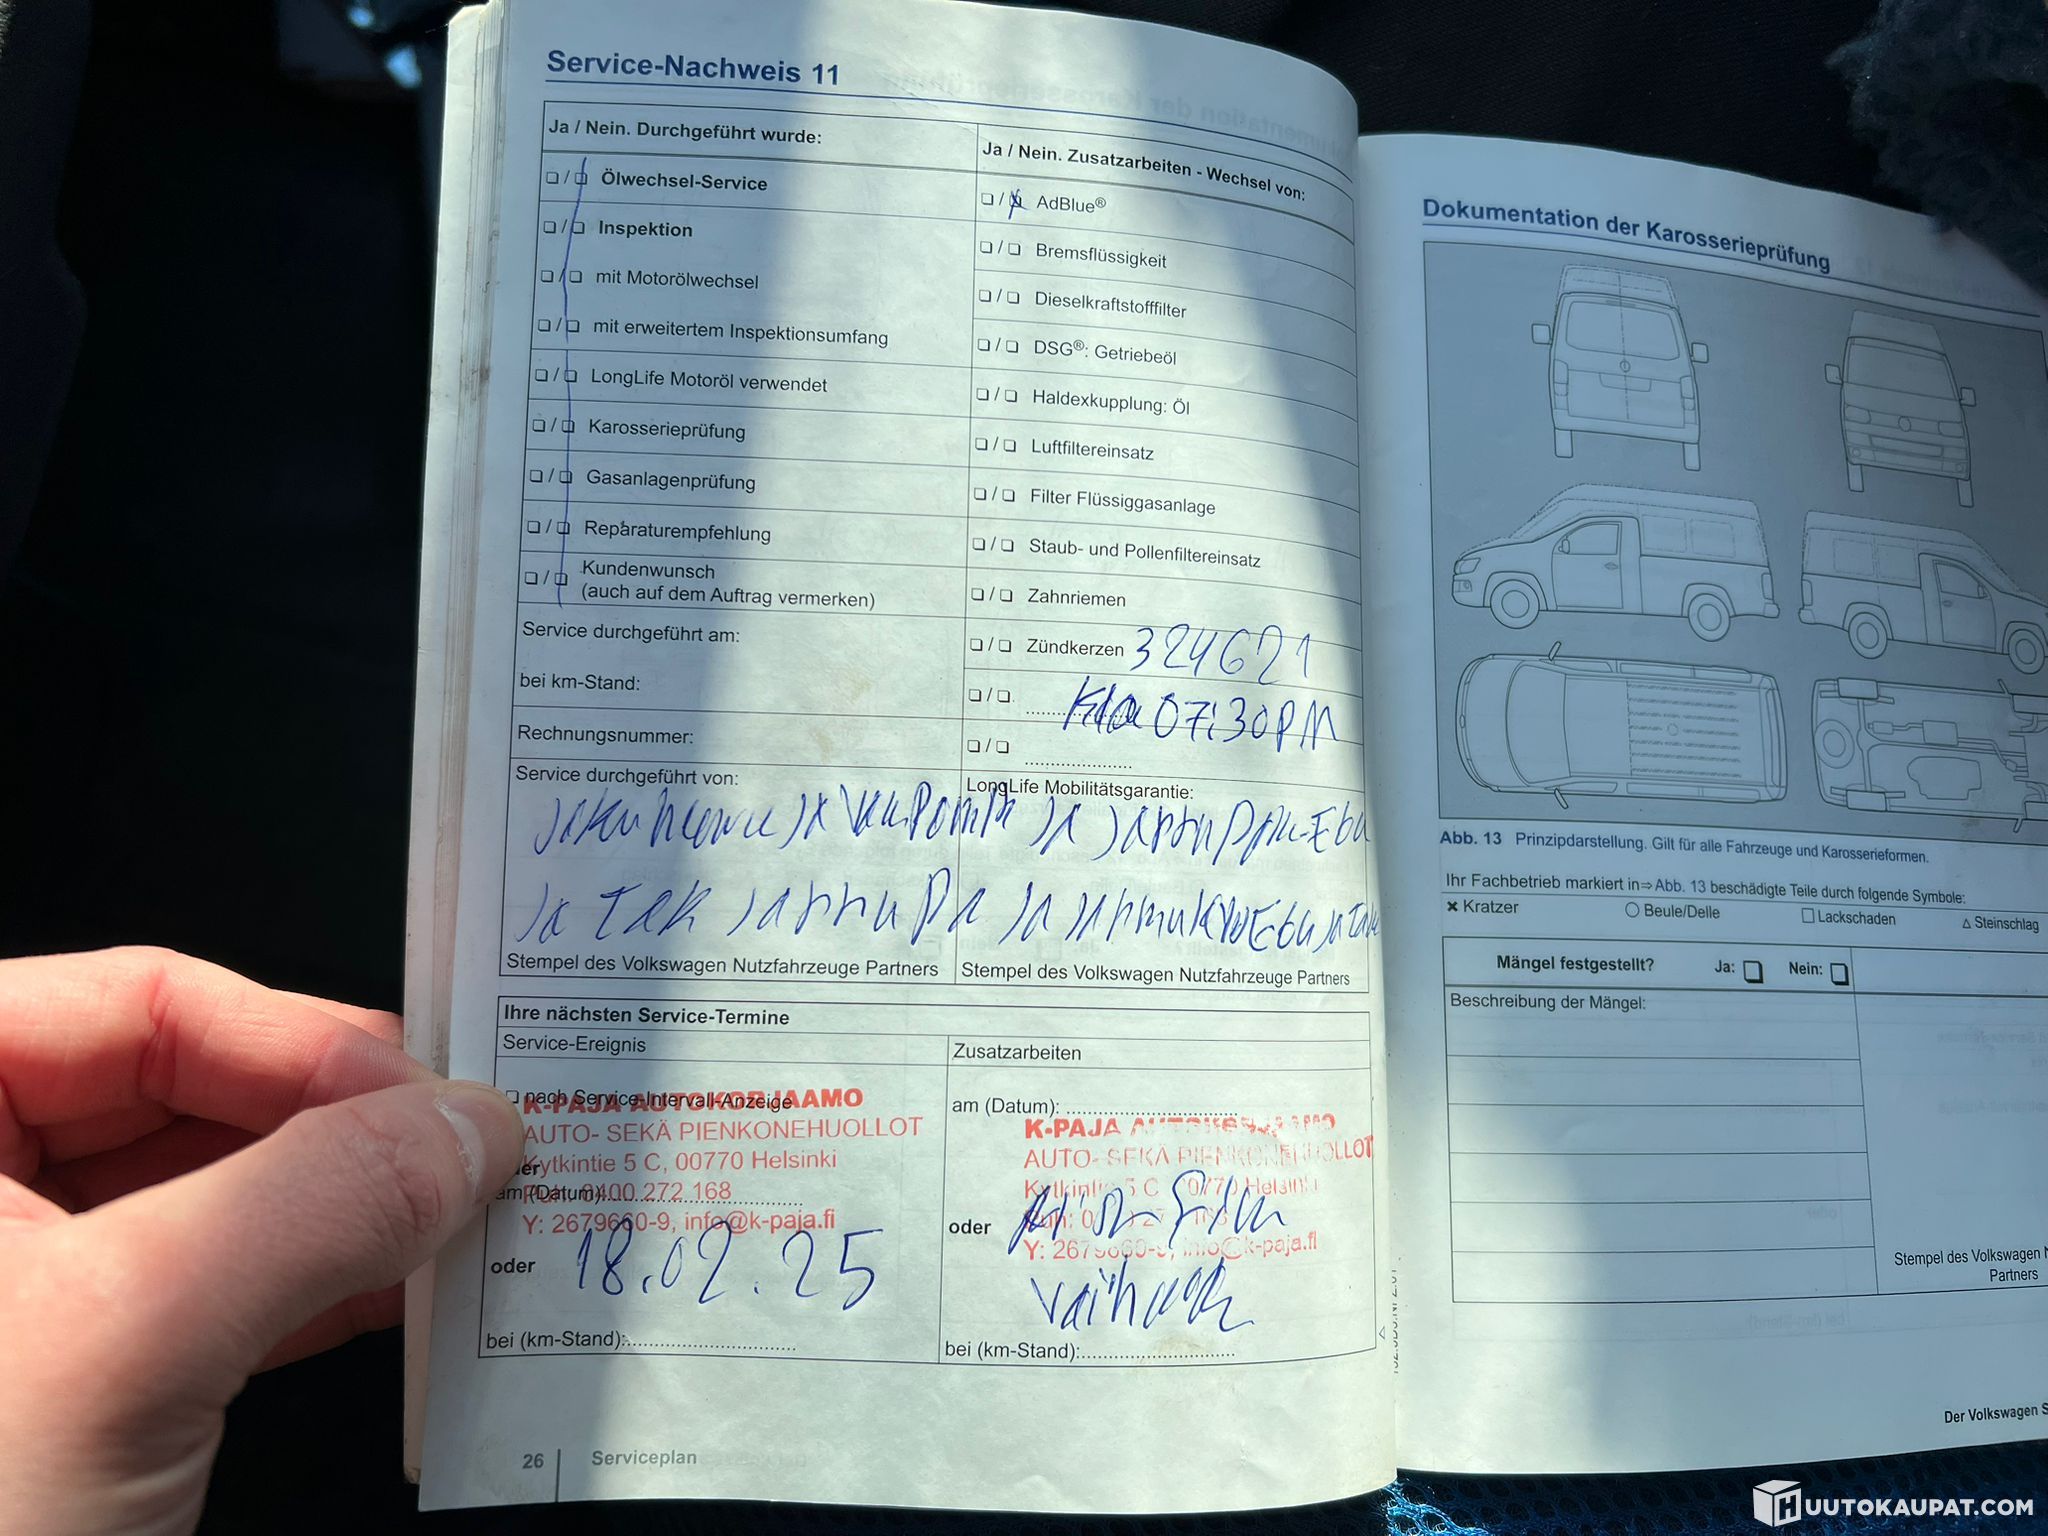 Service-Nachweis 11
Ja / Nein. Durchgeführt wurde:
❏ / ❏ Ölwechsel-Service
❏ / ❏ Inspektion
❏ / ❏ mit Motorölwechsel
❏ / ❏ mit erweitertem Inspektionsumfang
❏ / ❏ LongLife Motoröl verwendet
❏ / ❏ Karosserieprüfung
❏ / ❏ Gasanlagenprüfung
❏ / ❏ Reparaturempfehlung
❏ / ❏ Kundenwunsch
(auch auf dem Auftrag vermerken)
Service durchgeführt am:
bei km-Stand:
Rechnungsnummer:
Service durchgeführt von:
Ja / Nein. Zusatzarbeiten - Wechsel von:
❏ / ❏ AdBlue®
❏ / ❏ Bremsflüssigkeit
❏ / ❏ Dieselkraftstofffilter
❏ / ❏ DSG®: Getriebeöl
❏ / ❏ Haldexkupplung: Öl
❏ / ❏ Luftfiltereinsatz
❏ / ❏ Filter Flüssiggasanlage
❏ / ❏ Staub- und Pollenfiltereinsatz
❏ / ❏ Zahnriemen
❏ / ❏ Zündkerzen 324621
❏ / ❏ 07:30PM
❏ / ❏
LongLife Mobilitätsgarantie:
Stempel des Volkswagen Nutzfahrzeuge Partners
Stempel des Volkswagen Nutzfahrzeuge Partners
Ihre nächsten Service-Termine
Service-Ereignis
❏ nach Service-Intervall-Anzeige
K-PAJA AUTOKORJAAMO
AUTO- SEKÄ PIENKONEHUOLLOT
Kytkintie 5 C, 00770 Helsinki
am (Datum):
Puh: 0400 272 168
Y: 2679660-9, info@k-paja.fi
oder 18.02.25
bei (km-Stand):
Zusatzarbeiten
am (Datum):
K-PAJA AUTOKORJAAMO
AUTO- SEKÄ PIENKONEHUOLLOT
Kytkintie 5 C, 00770 Helsinki
oder
Y: 2679660-9, info@k-paja.fi
bei (km-Stand):
26 Serviceplan
Dokumentation der Karosserieprüfung
Abb. 13 Prinzipdarstellung. Gilt für alle Fahrzeuge und Karosserieformen.
Ihr Fachbetrieb markiert in⇒Abb. 13 beschädigte Teile durch folgende Symbole:
✖ Kratzer ○ Beule/Delle □ Lackschaden △ Steinschlag
Mängel festgestellt? Ja: ❏ Nein: ❏
Beschreibung der Mängel:
Stempel des Volkswagen N
Partners
Der Volkswagen S
HUUTOKAUPAT.COM